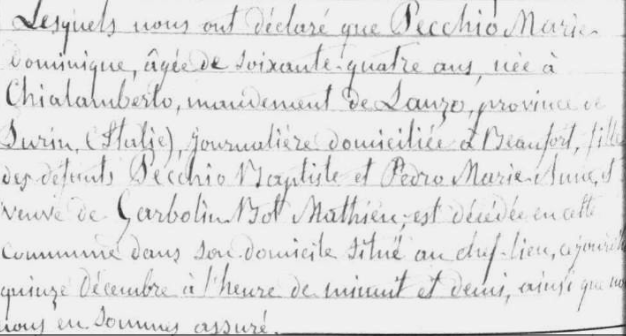 Lesquels nous ont déclaré que Pecchio Marie
Dominique, âgée de soixante-quatre ans, née à
Chialamberto, mandement de Lanzo, province de
Turin, (Italie), journalière domiciliée à Beaufort, fille
des défunts Pecchio Baptiste et Pedro Marie-Anne, et
veuve de Garbolin Bot Mathieu, est décédée en cette
commune dans son domicile situé au chef-lieu, cejourd'hui
quinze Décembre à l'heure de minuit et demi, ainsi que nous
nous en sommes assuré.